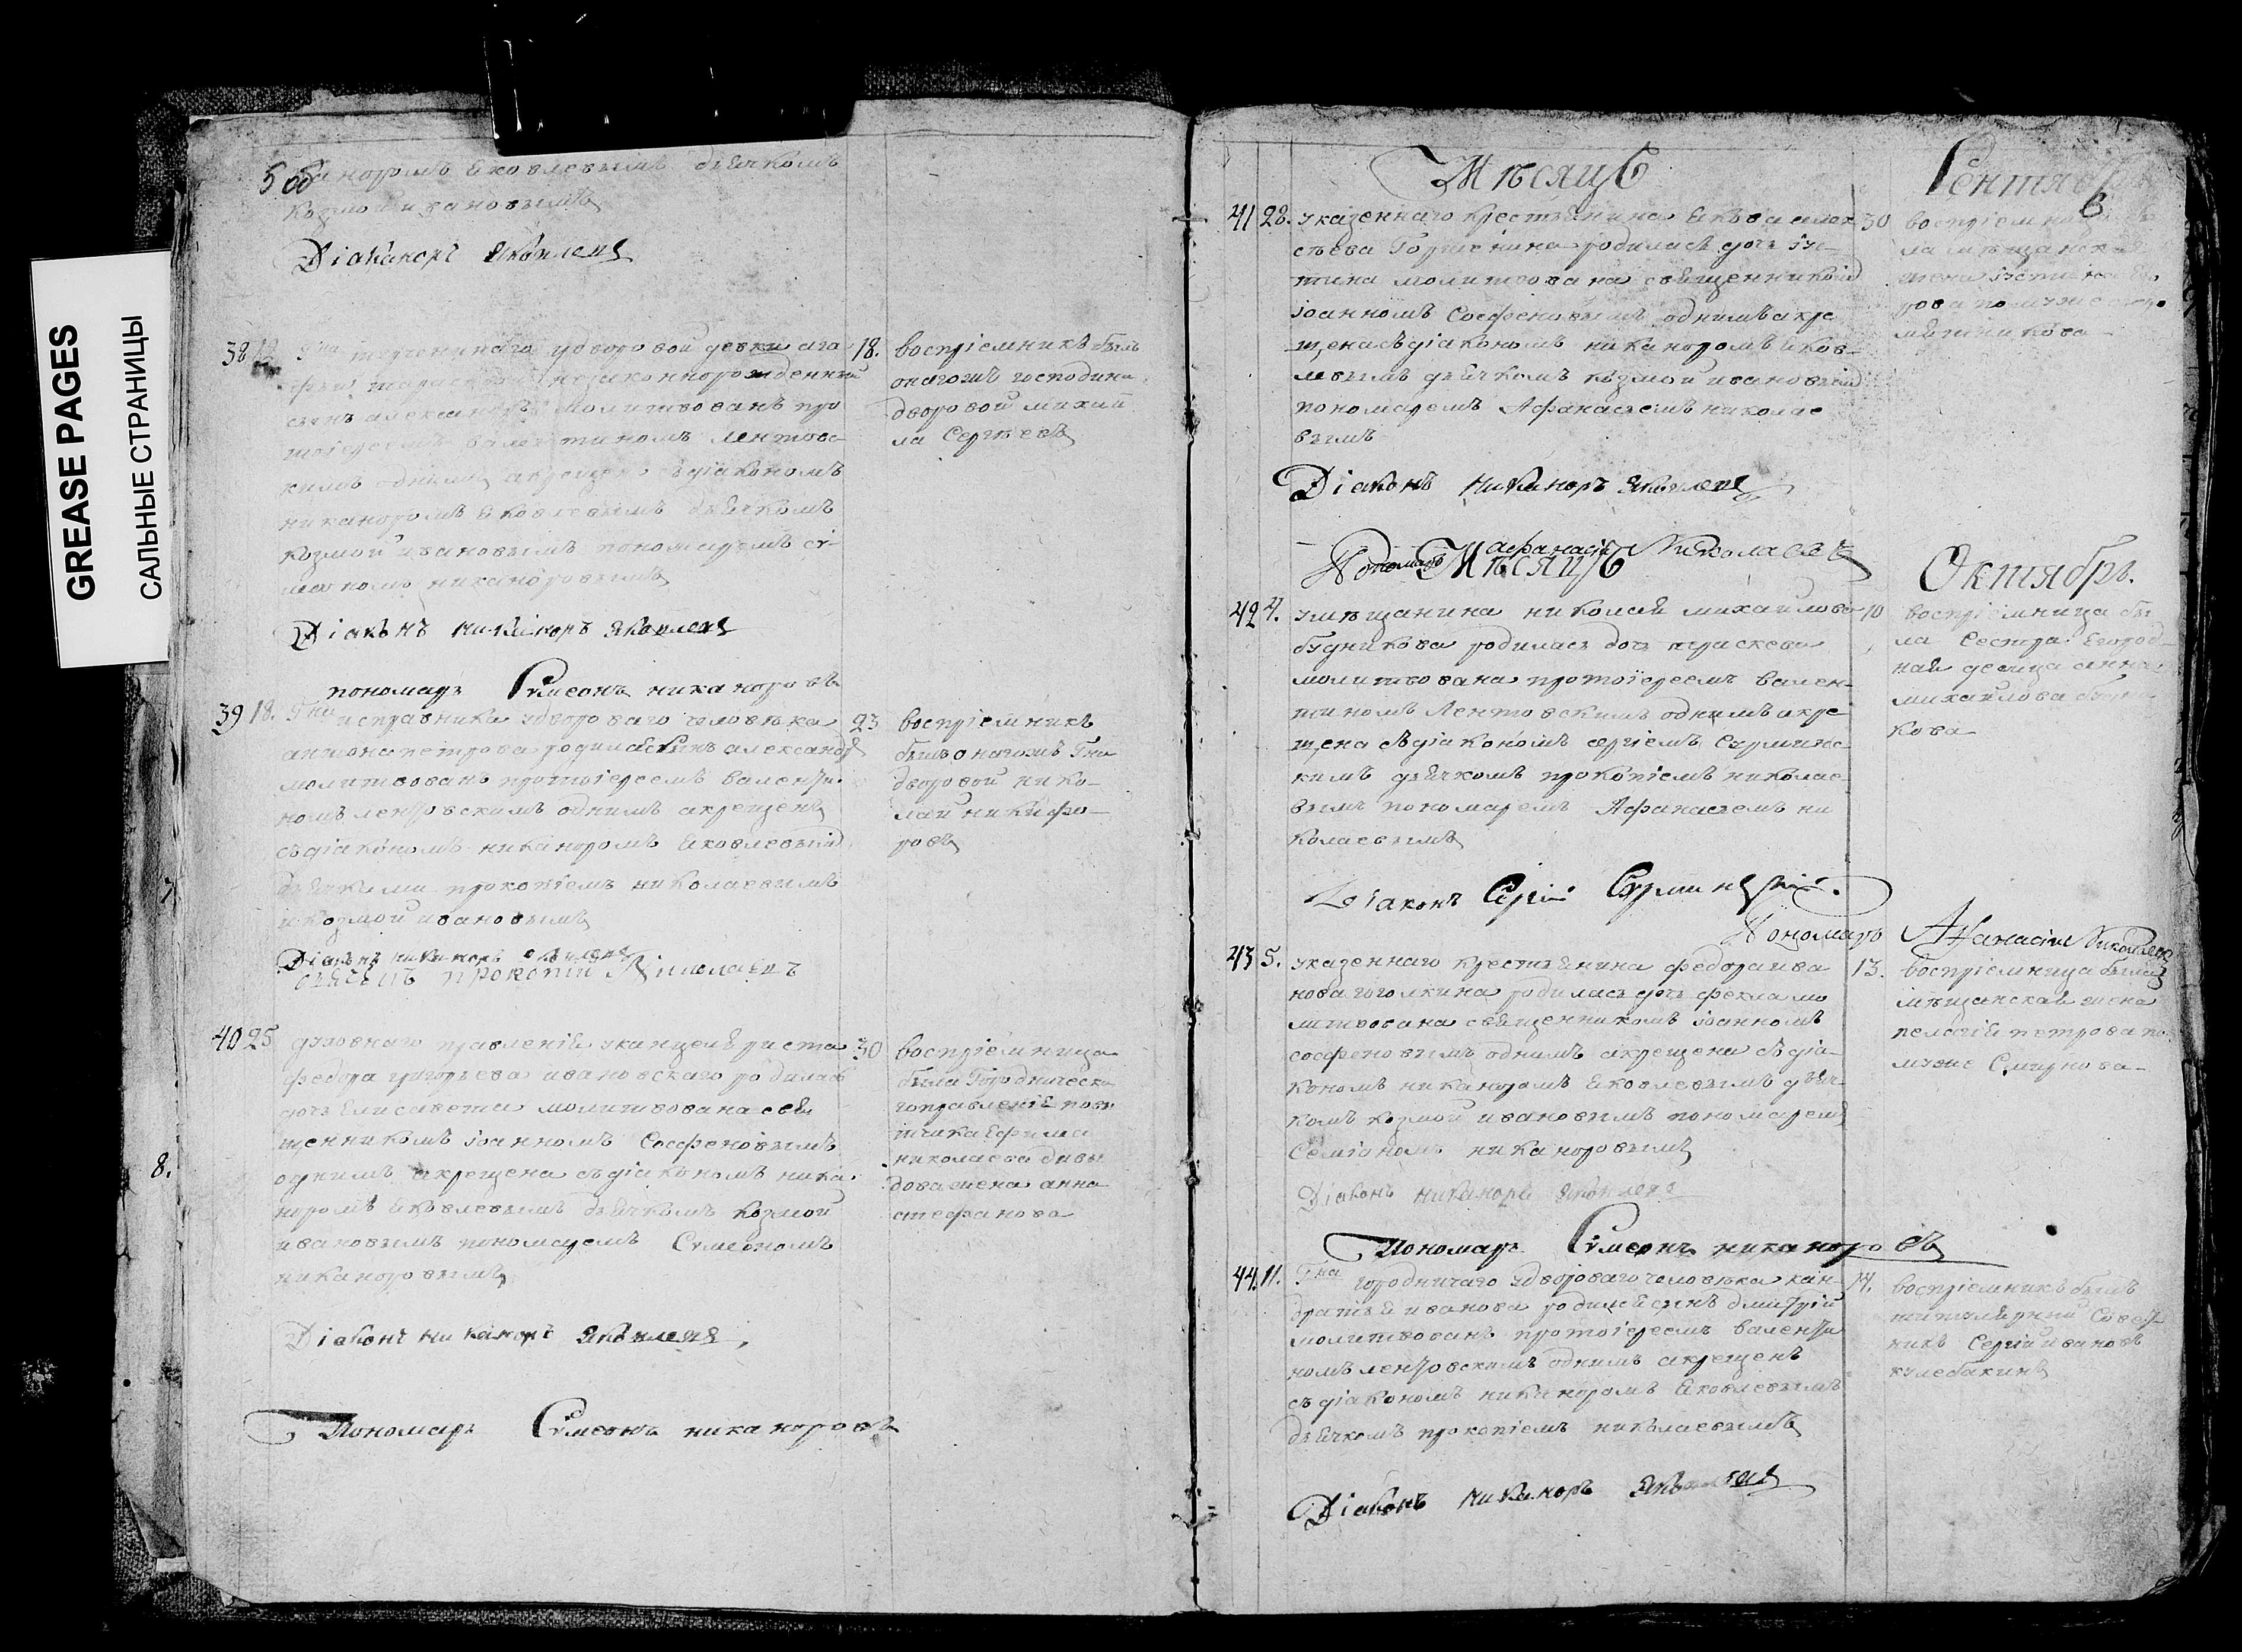 GREASE PAGES
САЛЬНЫЕ СТРАНИЦЫ
7
8.
5 об
норомъ Яковлевымъ дьячкомъ
Козмой ивановымъ
Діаканоръ Яковлевъ
38 18 Гна у дворовой девки ага 18.
незаконнорожденный
сынъ александръ молитвованъ про
валентиномъ лентовс
кимъ однимъ а крещенъ съ діакономъ
никаноромъ Яковлевымъ дьячкомъ
козмой ивановымъ пономаремъ си
меономъ никаноровымъ
воспріемникъ былъ
онагожъ господина
дворовой михай
ла Сергѣевъ
Діаконъ Никаноръ Яковлевъ
пономарь Симеонъ никаноровъ
39 18. Гна исправника у двороваго человѣка 23
антона петрова родился сынъ александръ
молитвованъ протоіереемъ валенти
номъ лентовскимъ однимъ а крещенъ
съ діакономъ никаноромъ Яковлевымъ
дьячками прокопіемъ николаевымъ
и козмой ивановымъ
воспріемникъ
былъ онагожъ Гна
дворовой нико
лай никифо
ровъ
Діаконъ Никаноръ Яковлевъ
дьячекъ прокопій Николаевъ
40 25 духовнаго правленія у канцеляриста 30
федора григорьева ивановскаго родилась
дочь Елисавета молитвована свя
щенникомъ іоанномъ Сосфеновымъ
однимъ а крещена съ діакономъ ника
норомъ Яковлевымъ дьячкомъ козмой
ивановымъ пономаремъ Симеономъ
никаноровымъ
воспріемница
была Городническа
го правленія повы
тчика Ефима
николаева
жена анна
стефанова
Діаконъ Никаноръ Яковлевъ
Пономарь Симеонъ никаноровъ
Мѣсяцъ Сентябрь
6
41 28. у казеннаго крестьянина Якова алек 30
сѣева родилась дочь іус
тина молитвована священникомъ
іоанномъ Сосфеновымъ однимъ а кре
щена съ діакономъ никаноромъ Яков
левымъ дьячкомъ козмой ивановымъ
пономаремъ Афанасьемъ николае
вымъ
ла мѣщанская
жена іустина
рова по мужѣ
Діаконъ Никаноръ Яковлевъ
Пономарь афанасій Николаевъ
Мѣсяцъ Октябрь.
42 4. у мѣщанина николая михайлова 10
будникова родилась дочь параскева
молитвована протоіереемъ вален
тиномъ Лентовскимъ однимъ а кре
щена съ діакономъ сергіемъ Сурминс
кимъ дьячкомъ прокопіемъ николае
вымъ пономаремъ Афанасьемъ ни
колаевымъ
воспріемница бы
ла Сестра Егород
ная девица анна
михайлова будни
кова
Діаконъ Сергій Сурминскій.
Пономарь Афанасій Николаевъ
43 5. у казеннаго крестьянина федора ива 13.
нова гоголкина родилась дочь фекла мо
литвована священникомъ іоанномъ
сосфеновымъ однимъ а крещена съ діа
кономъ никаноромъ Яковлевымъ дьяч
комъ козмой ивановымъ пономаремъ
Семіономъ никаноровымъ
воспріемница была
мѣщанская жена
пелагія петрова по
мужѣ Смирнова
Діаконъ Никаноръ Яковлевъ
Пономарь Симеонъ никаноровъ
44. 11. Гна городничаго у двороваго человѣка кан 14.
дратія иванова родился сынъ дмитрій
молитвованъ протоіереемъ валенти
номъ лентовскимъ однимъ а крещенъ
съ діакономъ никаноромъ Яковлевымъ
дьячкомъ прокопіемъ николаевымъ
воспріемникъ былъ
титулярный Совет
никъ Сергій ивановъ
кулебакинъ
Діаконъ Никаноръ Яковлевъ